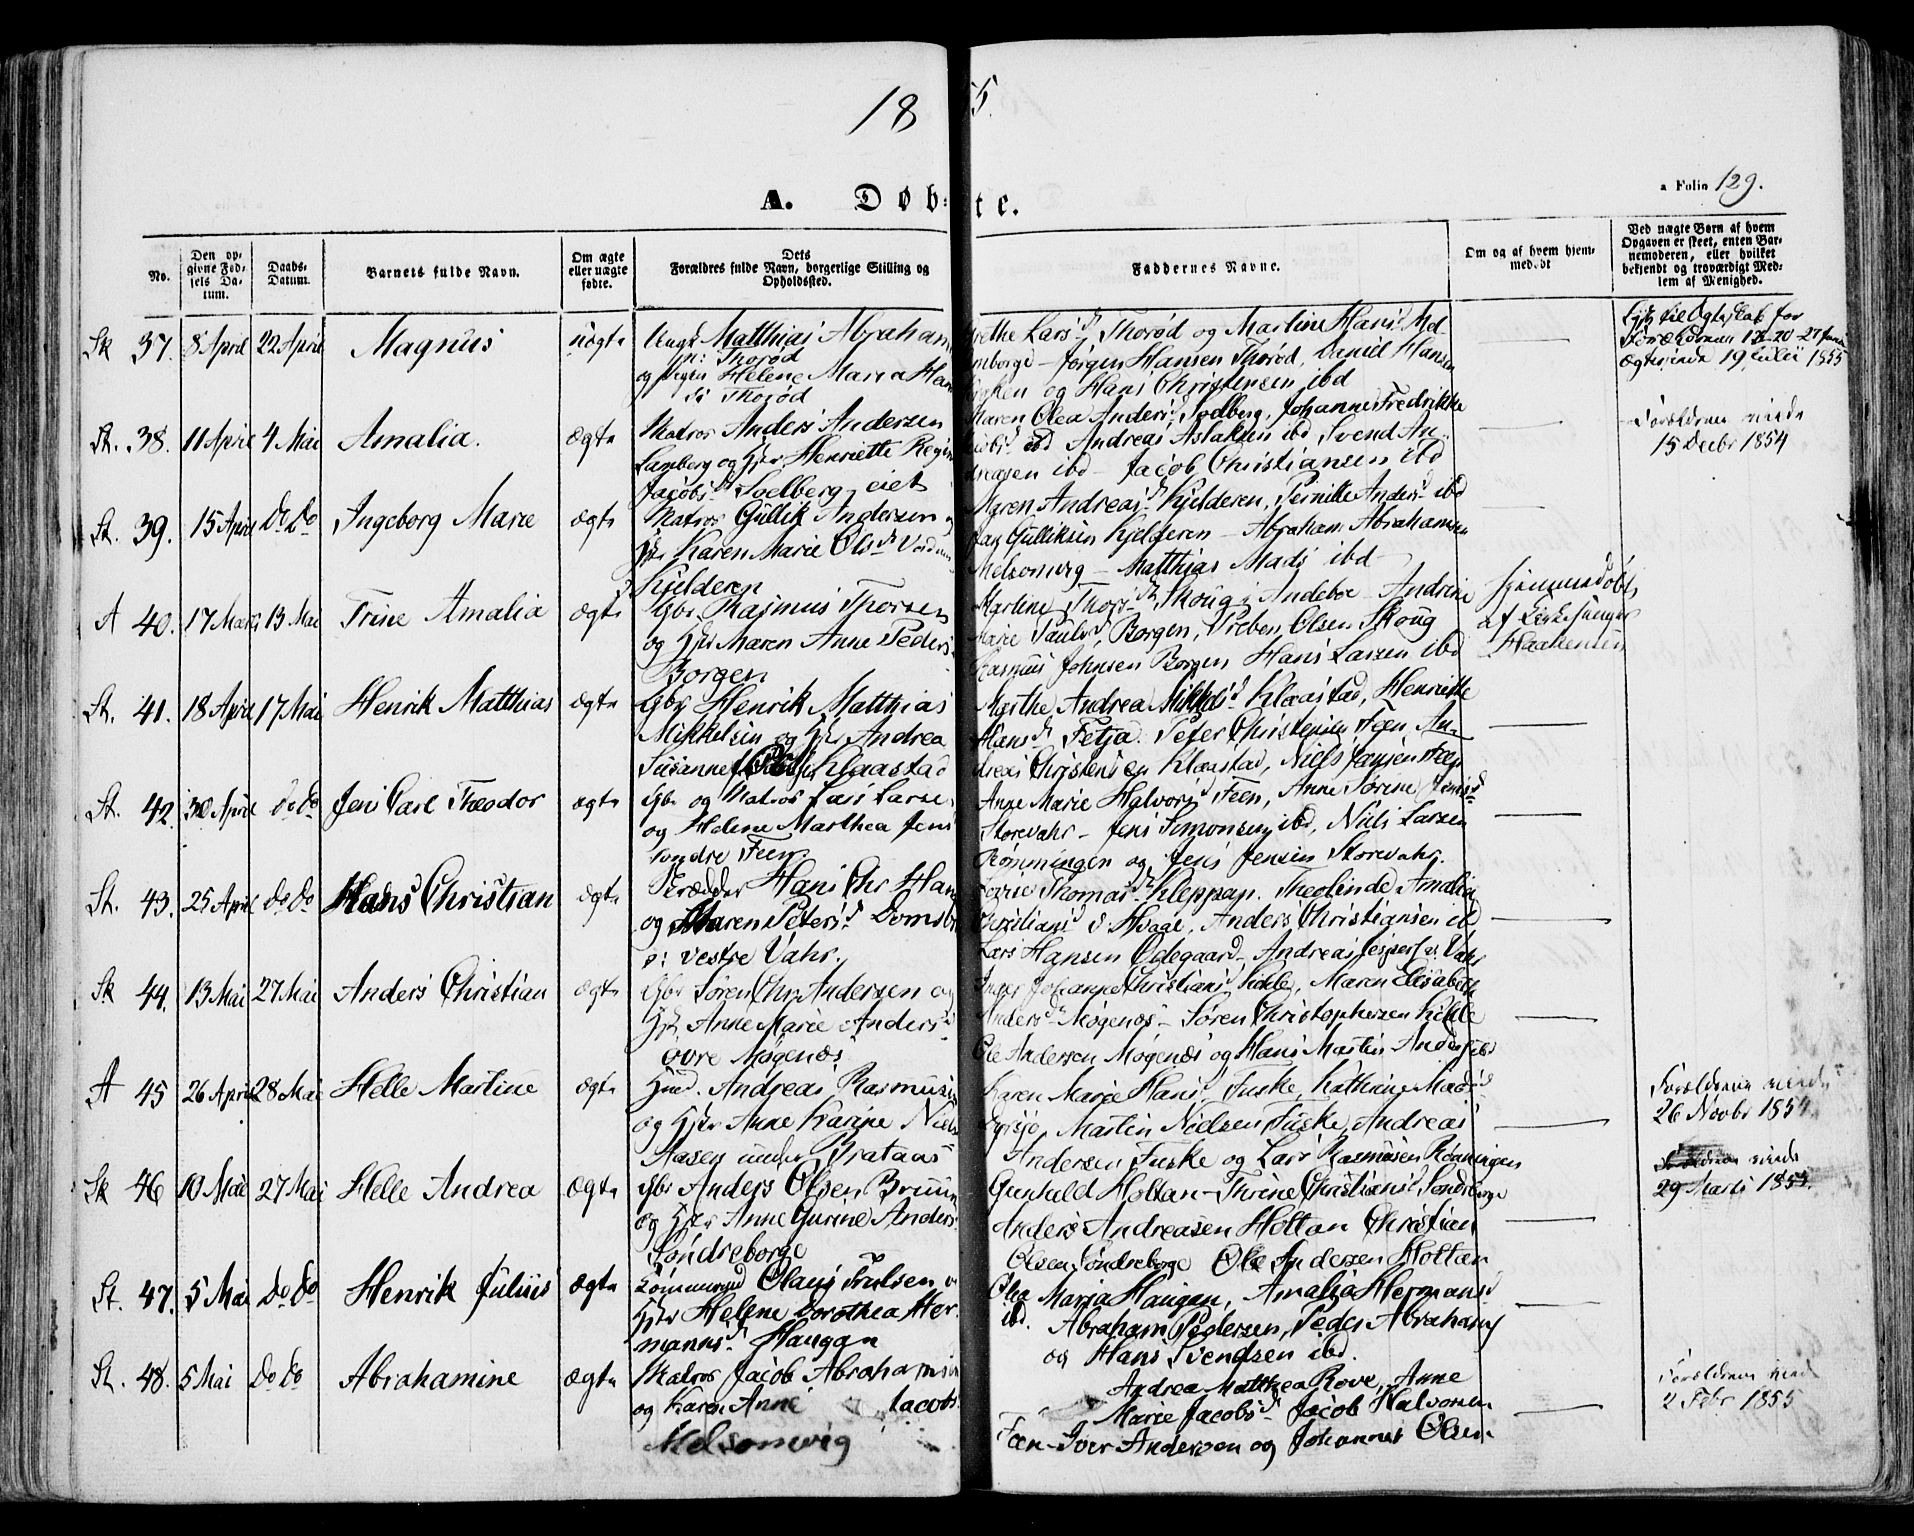 1855.
a Folio 129.
A. Døbte.
No.
Den opgivne Fødsels Datum.
Daabs-Datum.
Barnets fulde Navn.
Om ægte eller uægte fødte.
Dets Forældres fulde Navn, borgerlige Stilling og Opholdssted.
Faddernes Navne.
Om og af hvem hjemmedøbt
Ved uægte Børn af hvem Opgaven er skeet, enten Barnemoderen, eller hvilket bekjendt og troværdigt Medlem af Menighed.
Sk 37. 8 April 22 April Magnus uægte
Ungk Matthias Abraham
Thorød
og Pigen Helene Maria Hans
Thorød
Lars d. Thorød og Martine Hans
Jørgen Hansen Thorød, Daniel Hansen
og Hans Christensen ibd
Forældrene 13-20-27 Juni
19 Julii 1855
St. 38. 11 April 4 Mai Amalia. ægte
Matros Anders Andersen
Lamberg og Hstr Henriette Regin
Jacobs d. Soelberg, eiet
Maren Olea Anders d. Soelberg, Johanne Fredrikke
ibd Andreas Aslaksen ibd Svend An-
dreasen ibd - Jacob Christiansen ibd
Forældrene viede
15 Decbr 1854
St. 39. 15 April do do Ingeborg Marie ægte
Matros Gullik Andersen og
Hstr Karen Marie Ols d.
Kjelderen
Maren Andreas d. Kjelderen, Pernille Anders d. ibd
Gulliksen Kjelderen - Abraham Abrahamsen
Melsomvig - Matthias Mads ibd
A 40. 17 Marts 13 Mai Trine Amalia ægte
Gbr. Rasmus Thorsen
og Hstr Maren Anne Peders
Borgen
Martine Thors d. Skoug i Andeboe - Andrine
Marie Pauls d. Borgen, Preben Olsen Skoug
Rasmus Johnsen Borgen Hans Larsen ibd
hjemmedøbt
af Kirkesanger
Haakensen
St. 41. 18 April 17 Mai Henrik Matthias ægte
Gbr Henrik Matthias
Mikkelsen og Hstr Andrea
Susanne Klaastad
Marthe Andrea Mikkels d. Klaastad, Henriette
Hans d. Fetja. Peter Christensen Feen, An-
dreas Christensen Klaastad, Niels Jansen Feen
St. 42. 30 April do do Jens Carl Theodor ægte
Gbr og Matros Lars Larsen
og Helene Marthea Jens
Søndre Feen.
Anne Marie Halvors d. Feen, Anne Sørine Jens d.
Storevahr - Jens Simonsen ibd, Niels Larsen
Rømmingen og Jens Jensen Storevahr.
St. 43. 25 April do do Hans Christian ægte
Skrædder Hans Chr Hans
og Maren Peters d. Domsb
p: vestre Vahr.
Thomas d. Kleppan. Theolinde Amalia
Christians d. Hvaae, Anders Christiansen ibd
Lars Hansen Ødegaard - Andreas Jespers v. Vahr
Sk 44. 13 Mai 27 Mai Anders Christian ægte
Gbr Søren Chr. Andersen og
Hstr Anne Marie Anders d.
øvre Møgenæs
Inger Johanne Christians d. Kihle, Maren Elisabeth
Anders d. Møgenæs - Søren Christophersen Kihle
Ole Andersen Møgenæs og Hans Martin Anders ibd
A 45 26 April 28 Mai Helle Martine ægte
Andreas Rasmusen
og Hstr Anne Karine Niels
Aasen under Prataas
Karen Marie Hans d. Fuske, Kathrine Mads d.
Martin Nielsen Fuske, Andreas
Andersen Fuske og Lars Rasmusen Rønningen
Forældrene viede
26 Novbr 1854.
Sk 46 10 Mai 27 Mai Helle Andrea ægte
Gbr Anders Olsen Bruun
og Hstr Anne Gurine Anders
Søndreborge
Gunhild Holtan - Thrine Christians d. Søndreborge
Anders Andreasen Holtan Christian
Olsen Søndreborge Ole Andersen Holtan
Forældrene viede
29 Marts 1855.
St. 47. 5 Mai do do Henrik Julius ægte
Tømmermd Olaus Trulsen og
Hstr Helene Dorothea Her-
manns d. Haugan
Olea Maria Haugan, Amalia Hermans d.
ibd. Abraham Pedersen, Peder Abrahams
og Hans Svendsen ibd.
St. 48. 5 Mai do do Abrahamine ægte
Matros Jacob Abrahamsen
og Karen Anne Jacobs
Melsomvig
Andrea Matthea Rove, Anne
Marie Jacobs d. Jacob Halvorsen
Feen - Iver Andersen og Johannes Olsen
Forældrene viede
2 Febr 1855